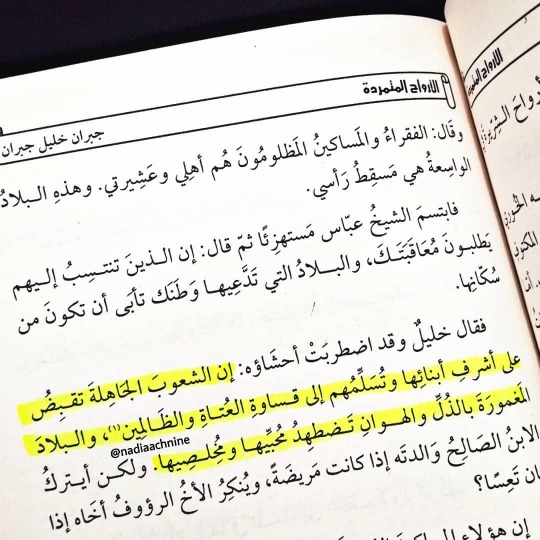 الأرواح المتمردة
جبران خليل جبران
وقَال: الفقراءُ والمَساكينُ المَظلومُونَ هُم أهلِي وعَشِيرتي. وهذهِ البلادُ
الواسِعةُ هي مَسقِطُ رَأسي.
فابتسمَ الشيخُ عبّاس مَستهزِئًا ثمّ قال: إن الذينَ تنتسِبُ إليهم
يَطلبونَ مُعَاقَبَتَكَ، والبلادُ التي تَدَّعِيها وَطَنَك تأبَى أن تكونَ من
سُكّانِها.
فقال خليلٌ وقد اضطربَتْ أحشَاؤه: إن الشعوبَ الجَاهِلةَ تقبِضُ
على أشرفِ أبنائِها وتُسَلِّمُهم إلى قساوةِ العُتَاةِ والظَالِمِين(١)، والبلادَ
المَغمورَةَ بالذُلِّ والهوانِ تَضطهِدُ مُحبِّيها ومُخلصِيها. ولكن أيتركُ
@nadiaachnine
الابنُ الصَالِحُ وَالدتَه إذا كانت مَريضَةً، ويُنكِرُ الأخُ الرؤوفُ أخَاه إذا
تَعِسًا؟
إن هؤلاءِ
الأرواح المتمردة